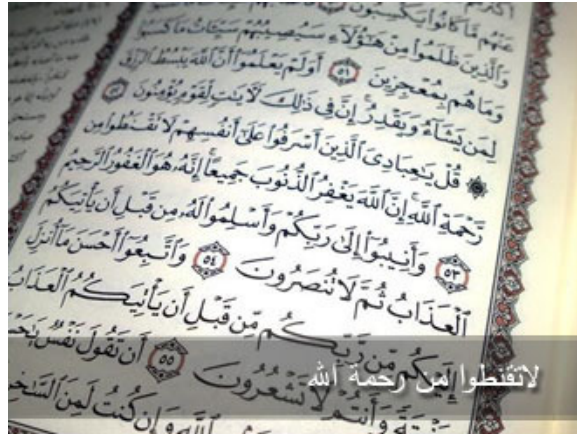 عَنْهُم مَّا كَانُوا۟ يَكْسِبُونَ
وَٱلَّذِينَ ظَلَمُوا۟ مِنْ هَـٰٓؤُلَآءِ سَيُصِيبُهُمْ سَيِّـَٔاتُ مَا كَسَبُوا۟
وَمَا هُم بِمُعْجِزِينَ ٥١ أَوَلَمْ يَعْلَمُوٓا۟ أَنَّ ٱللَّهَ يَبْسُطُ ٱلرِّزْقَ
لِمَن يَشَآءُ وَيَقْدِرُ ۚ إِنَّ فِى ذَٰلِكَ لَـَٔايَـٰتٍ لِّقَوْمٍ يُؤْمِنُونَ ٥٢
۞ قُلْ يَـٰعِبَادِىَ ٱلَّذِينَ أَسْرَفُوا۟ عَلَىٰٓ أَنفُسِهِمْ لَا تَقْنَطُوا۟ مِن
رَّحْمَةِ ٱللَّهِ ۚ إِنَّ ٱللَّهَ يَغْفِرُ ٱلذُّنُوبَ جَمِيعًا ۚ إِنَّهُۥ هُوَ ٱلْغَفُورُ ٱلرَّحِيمُ
٥٣ وَأَنِيبُوٓا۟ إِلَىٰ رَبِّكُمْ وَأَسْلِمُوا۟ لَهُۥ مِن قَبْلِ أَن يَأْتِيَكُمُ
ٱلْعَذَابُ ثُمَّ لَا تُنصَرُونَ ٥٤ وَٱتَّبِعُوٓا۟ أَحْسَنَ مَآ أُنزِلَ
إِلَيْكُم مِّن رَّبِّكُم مِّن قَبْلِ أَن يَأْتِيَكُمُ ٱلْعَذَابُ
وَأَنتُمْ لَا تَشْعُرُونَ ٥٥ أَن تَقُولَ نَفْسٌ
وَإِن كُنتُ لَمِنَ
لاتقنطوا من رحمة الله